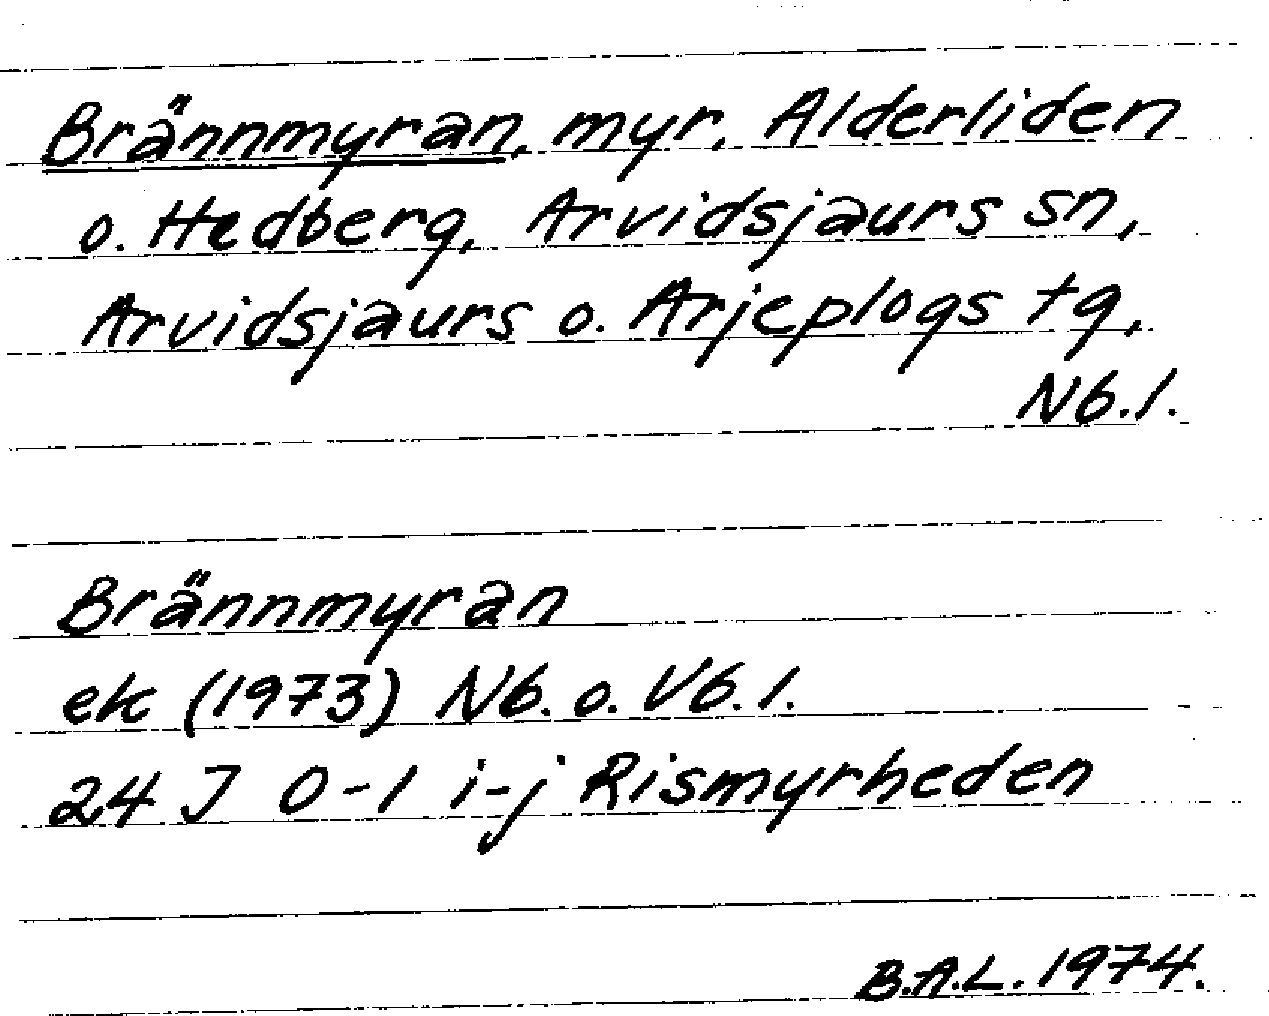 Brännmyran, myr, Alderliden
o. Hedberg, Arvidsjaurs sn,
Arvidsjaurs o. Arjeplogs tg,
Nb.l.
Brännmyran
ek (1973) Nb. o. Vb. l.
24 J 0-1 i-j Rismyrheden
B.A.L. 1974.